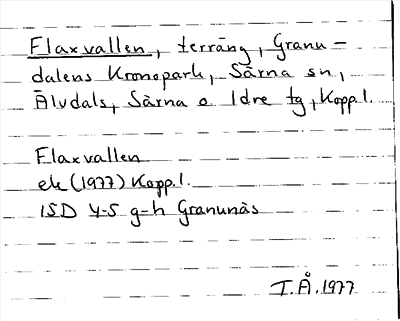 Flaxvallen, terräng, Granu-
dalens Kronopark, Särna sn,
Älvdals, Särna o Idre tg, Kopp.l.
Flaxvallen
ek (1977) Kopp.l.
15D 4-5 g-h Granunäs
T.Å. 1977